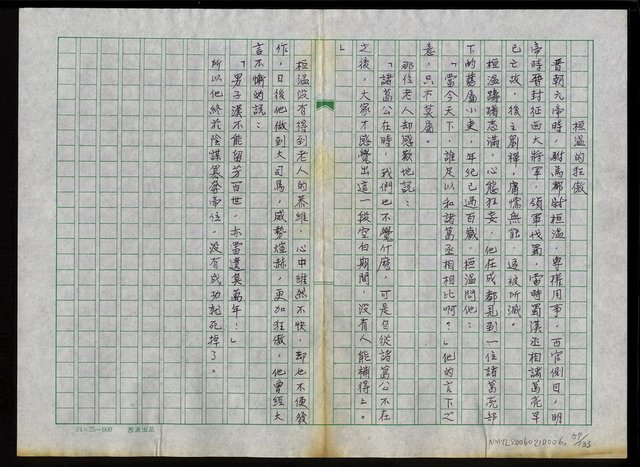 桓溫的狂傲
晉朝元帝時，駙馬都尉桓溫，專權用事，百官側目，明
帝時晉封征西大將軍，領軍伐蜀，當時蜀漢丞相諸葛亮早
已亡故，後主劉禪，庸懦無能，遂被所滅。
桓溫躊躇志滿，心態狂妄，他在成都見到一位諸葛亮部
下的舊屬小吏，年紀已過百歲，桓溫問他：
「當今天下，誰足以和諸葛丞相相比啊？」他的言下之
意，只有莫屬。
那位老人却感歎地說：
「諸葛公在時，我們也不覺什麼，可是自從諸葛公不在
之後，大家才感覺出這一段空白期間，沒有人能補得上。
」
桓溫沒有得到老人的恭維，心中雖然不快，却也不便發
作，日後他做到大司馬，威勢煊赫，更加狂傲，他曾經大
言不慚的說：
「男子漢不能留芳百世，亦當遺臭萬年！」
所以他終於陰謀篡奪帝位，沒有成功就死掉了。
24×25=600 西源出品
NMTL20060210006
57/133